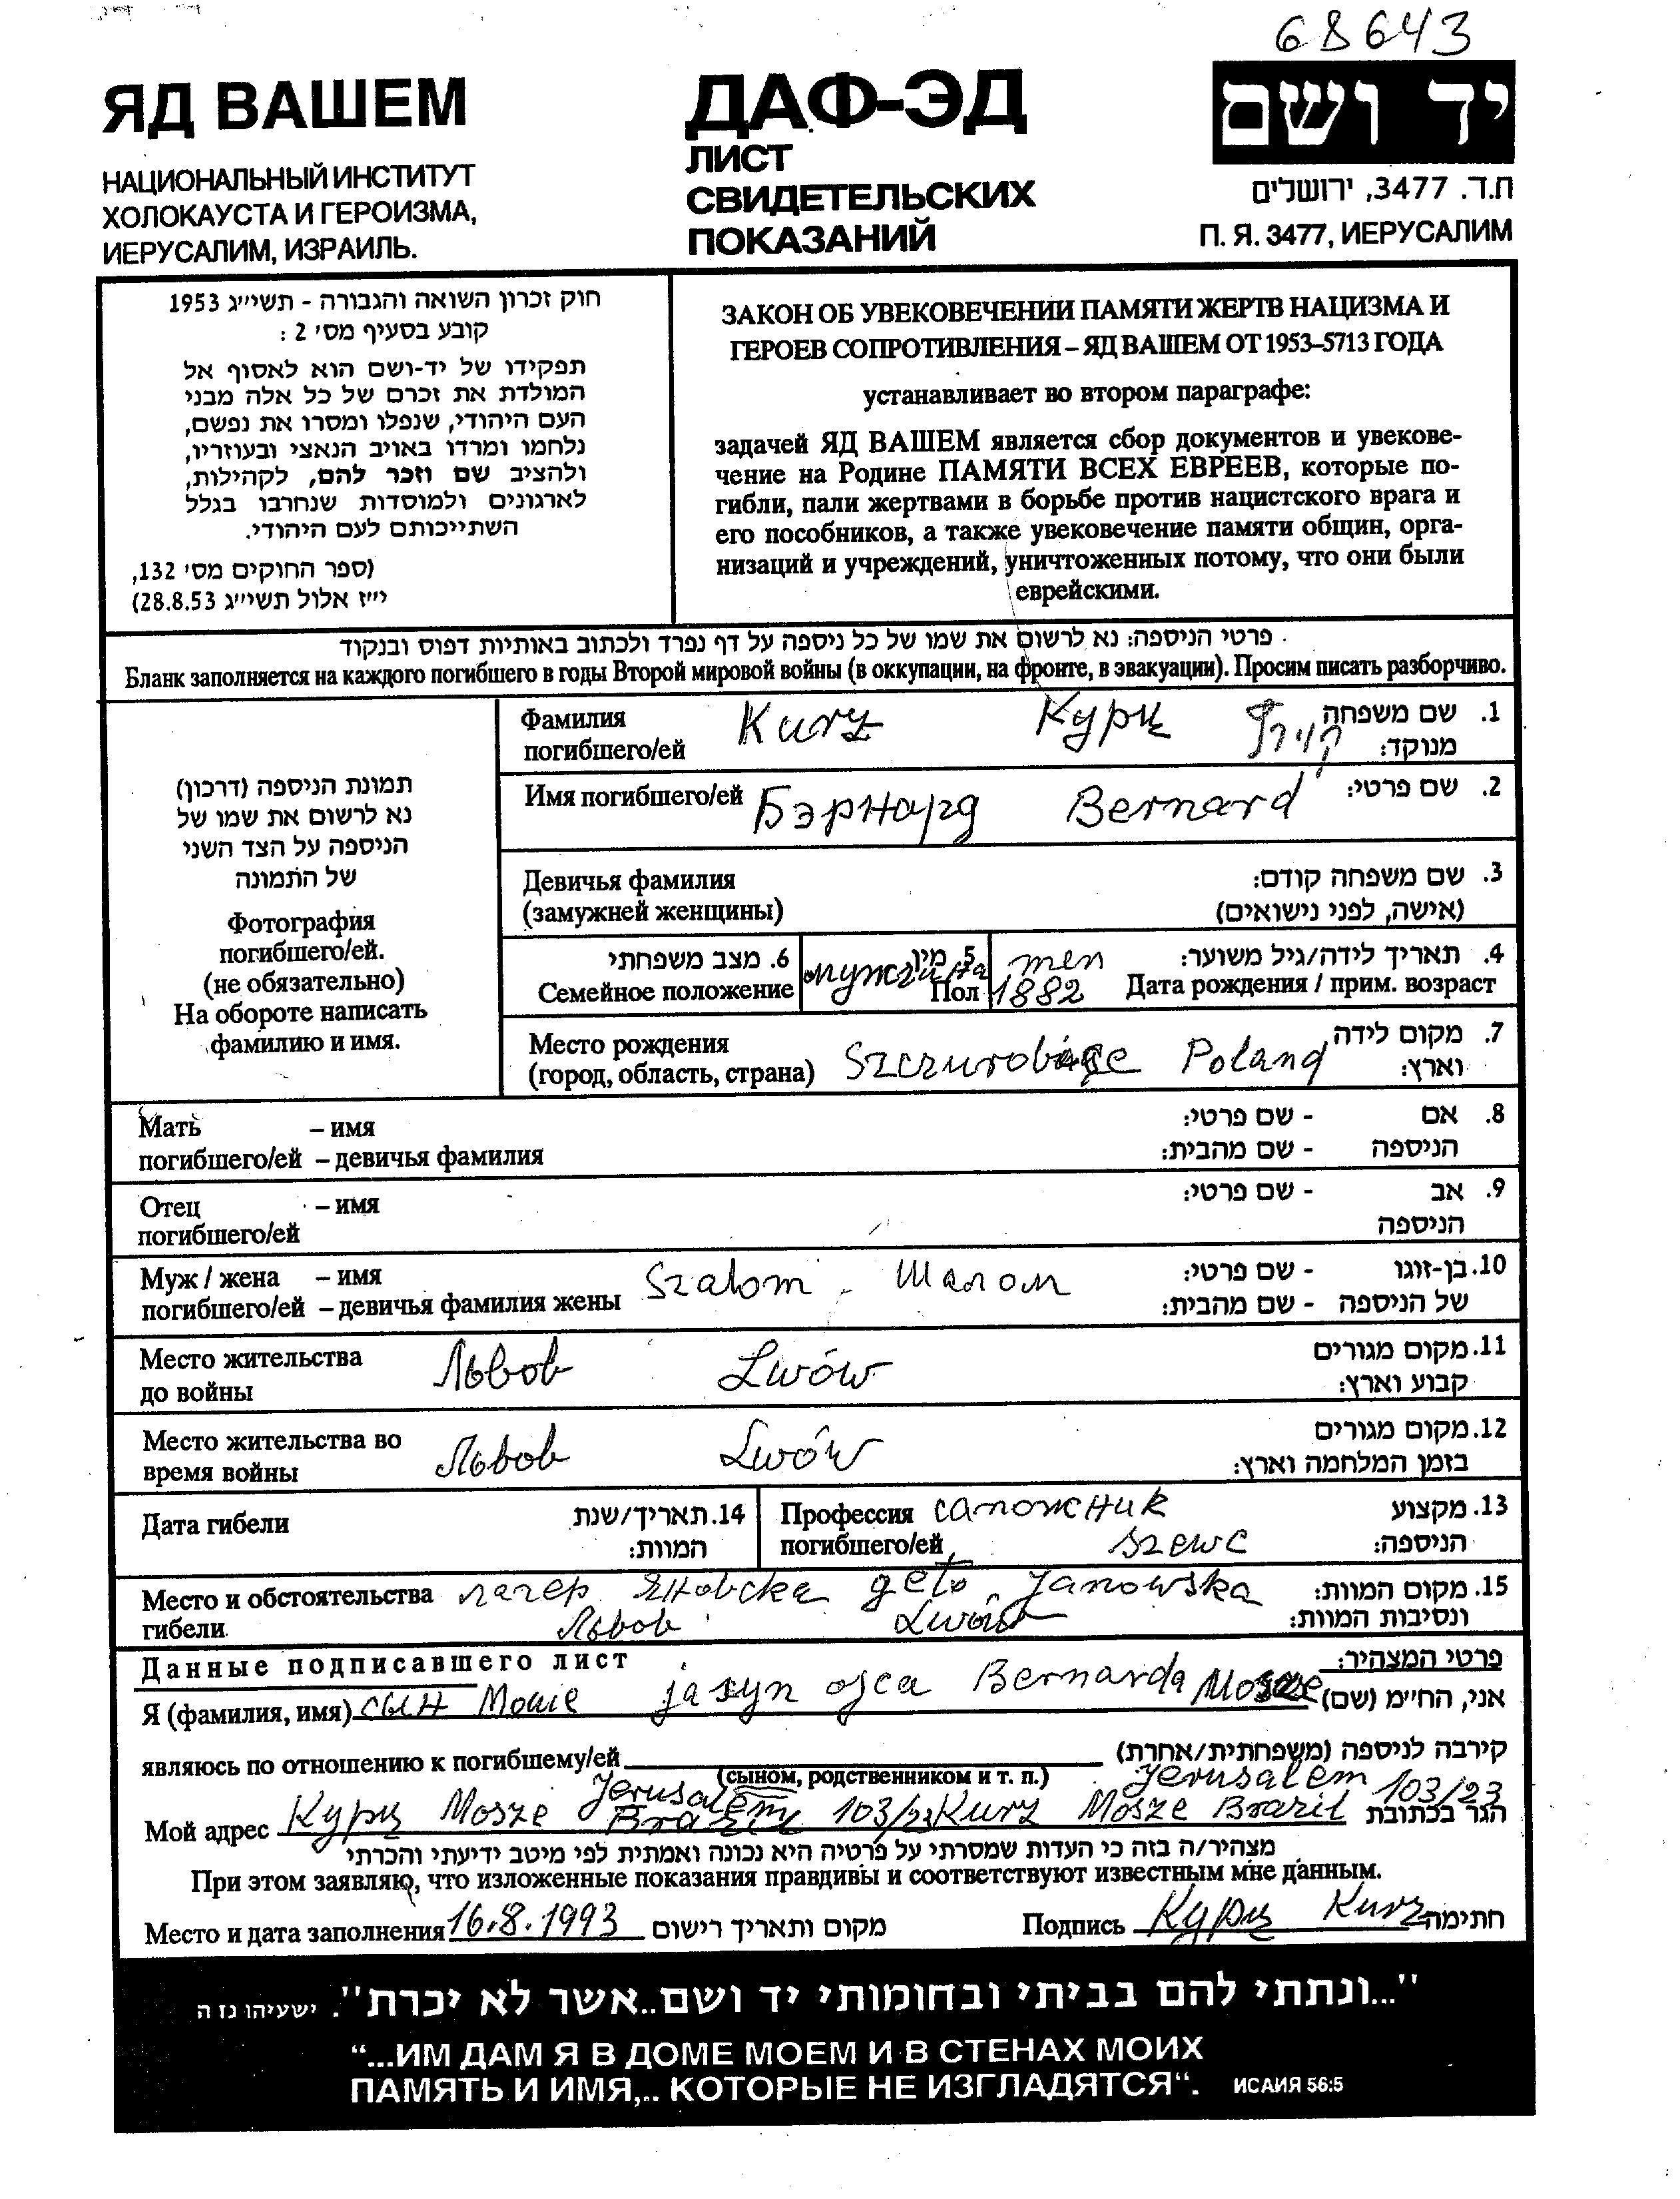 68643
ЯД ВАШЕМ
НАЦИОНАЛЬНЫЙ ИНСТИТУТ
ХОЛОКАУСТА И ГЕРОИЗМА,
ИЕРУСАЛИМ, ИЗРАИЛЬ.
ДАФ-ЭД
ЛИСТ
СВИДЕТЕЛЬСКИХ
ПОКАЗАНИЙ
יד ושם
ת.ד. 3477, ירושלים
П. Я. 3477, ИЕРУСАЛИМ
חוק זכרון השואה והגבורה - תשי״ג 1953
קובע בסעיף מס׳ 2 :
תפקידו של יד-ושם הוא לאסוף אל
המולדת את זכרם של כל אלה מבני
העם היהודי, שנפלו ומסרו את נפשם,
נלחמו ומרדו באויב הנאצי ובעוזריו,
ולהציב שם וזכר להם, לקהילות,
לארגונים ולמוסדות שנחרבו בגלל
השתייכותם לעם היהודי.
(ספר החוקים מס׳ 132,
י״ז אלול תשי״ג 28.8.53)
ЗАКОН ОБ УВЕКОВЕЧЕНИИ ПАМЯТИ ЖЕРТВ НАЦИЗМА И
ГЕРОЕВ СОПРОТИВЛЕНИЯ – ЯД ВАШЕМ ОТ 1953–5713 ГОДА
устанавливает во втором параграфе:
задачей ЯД ВАШЕМ является сбор документов и увекове-
чение на Родине ПАМЯТИ ВСЕХ ЕВРЕЕВ, которые по-
гибли, пали жертвами в борьбе против нацистского врага и
его пособников, а также увековечение памяти общин, орга-
низаций и учреждений, уничтоженных потому, что они были
еврейскими.
פרטי הניספה: נא לרשום את שמו של כל ניספה על דף נפרד ולכתוב באותיות דפוס ובנקוד
Бланк заполняется на каждого погибшего в годы Второй мировой войны (в оккупации, на фронте, в эвакуации). Просим писать разборчиво.
תמונת הניספה (דרכון)
נא לרשום את שמו של
הניספה על הצד השני
של התמונה
Фотография
погибшего/ей.
(не обязательно)
На обороте написать
фамилию и имя.
Фамилия Kurz Курц 1. שם משפחה
погибшего/ей מנוקד:
Имя погибшего/ей Бэрнард Bernard 2. שם פרטי:
Девичья фамилия 3. שם משפחה קודם:
(замужней женщины) (אישה, לפני נישואים)
6. מצב משפחתי 5. מין men 4. תאריך לידה/גיל משוער:
Семейное положение мужчина Пол 1882 Дата рождения / прим. возраст
Место рождения 7. מקום לידה
(город, область, страна) Poland וארץ:
Мать – имя 8. אם - שם פרטי:
погибшего/ей – девичья фамилия הניספה - שם מהבית:
Отец – имя 9. אב - שם פרטי:
погибшего/ей הניספה
Муж / жена – имя Szalom Шалом 10. בן-זוגו - שם פרטי:
погибшего/ей – девичья фамилия жены של הניספה - שם מהבית:
Место жительства Львов Lwów 11. מקום מגורים
до войны קבוע וארץ:
Место жительства во Львов Lwów 12. מקום מגורים
время войны בזמן המלחמה וארץ:
Дата гибели 14. תאריך/שנת
המוות:
Профессия сапожник 13. מקצוע
погибшего/ей szewc הניספה:
Место и обстоятельства лагерь Яновска geto Janowska 15. מקום המוות:
гибели Львов Lwów ונסיבות המוות:
Данные подписавшего лист פרטי המצהיר:
Я (фамилия, имя) сын Моше ja syn ojca Bernarda Mosze אני, הח״מ (שם)
являюсь по отношению к погибшему/ей קירבה לניספה (משפחתית/אחרת)
(сыном, родственником и т. п.)
Jerusalem Jerusalem 103/23
Мой адрес Курц Mosze Brazil 103/23 Kurz Mosze Brazil הגר בכתובת
מצהיר/ה בזה כי העדות שמסרתי על פרטיה היא נכונה ואמתית לפי מיטב ידיעתי והכרתי
При этом заявляю, что изложенные показания правдивы и соответствуют известным мне данным.
Место и дата заполнения 16.8.1993 מקום ותאריך רישום Подпись Курц Kurz חתימה
"...ונתתי להם בביתי ובחומותי יד ושם..אשר לא יכרת". ישעיהו נז ה
“...ИМ ДАМ Я В ДОМЕ МОЕМ И В СТЕНАХ МОИХ
ПАМЯТЬ И ИМЯ,.. КОТОРЫЕ НЕ ИЗГЛАДЯТСЯ“. ИСАИЯ 56:5